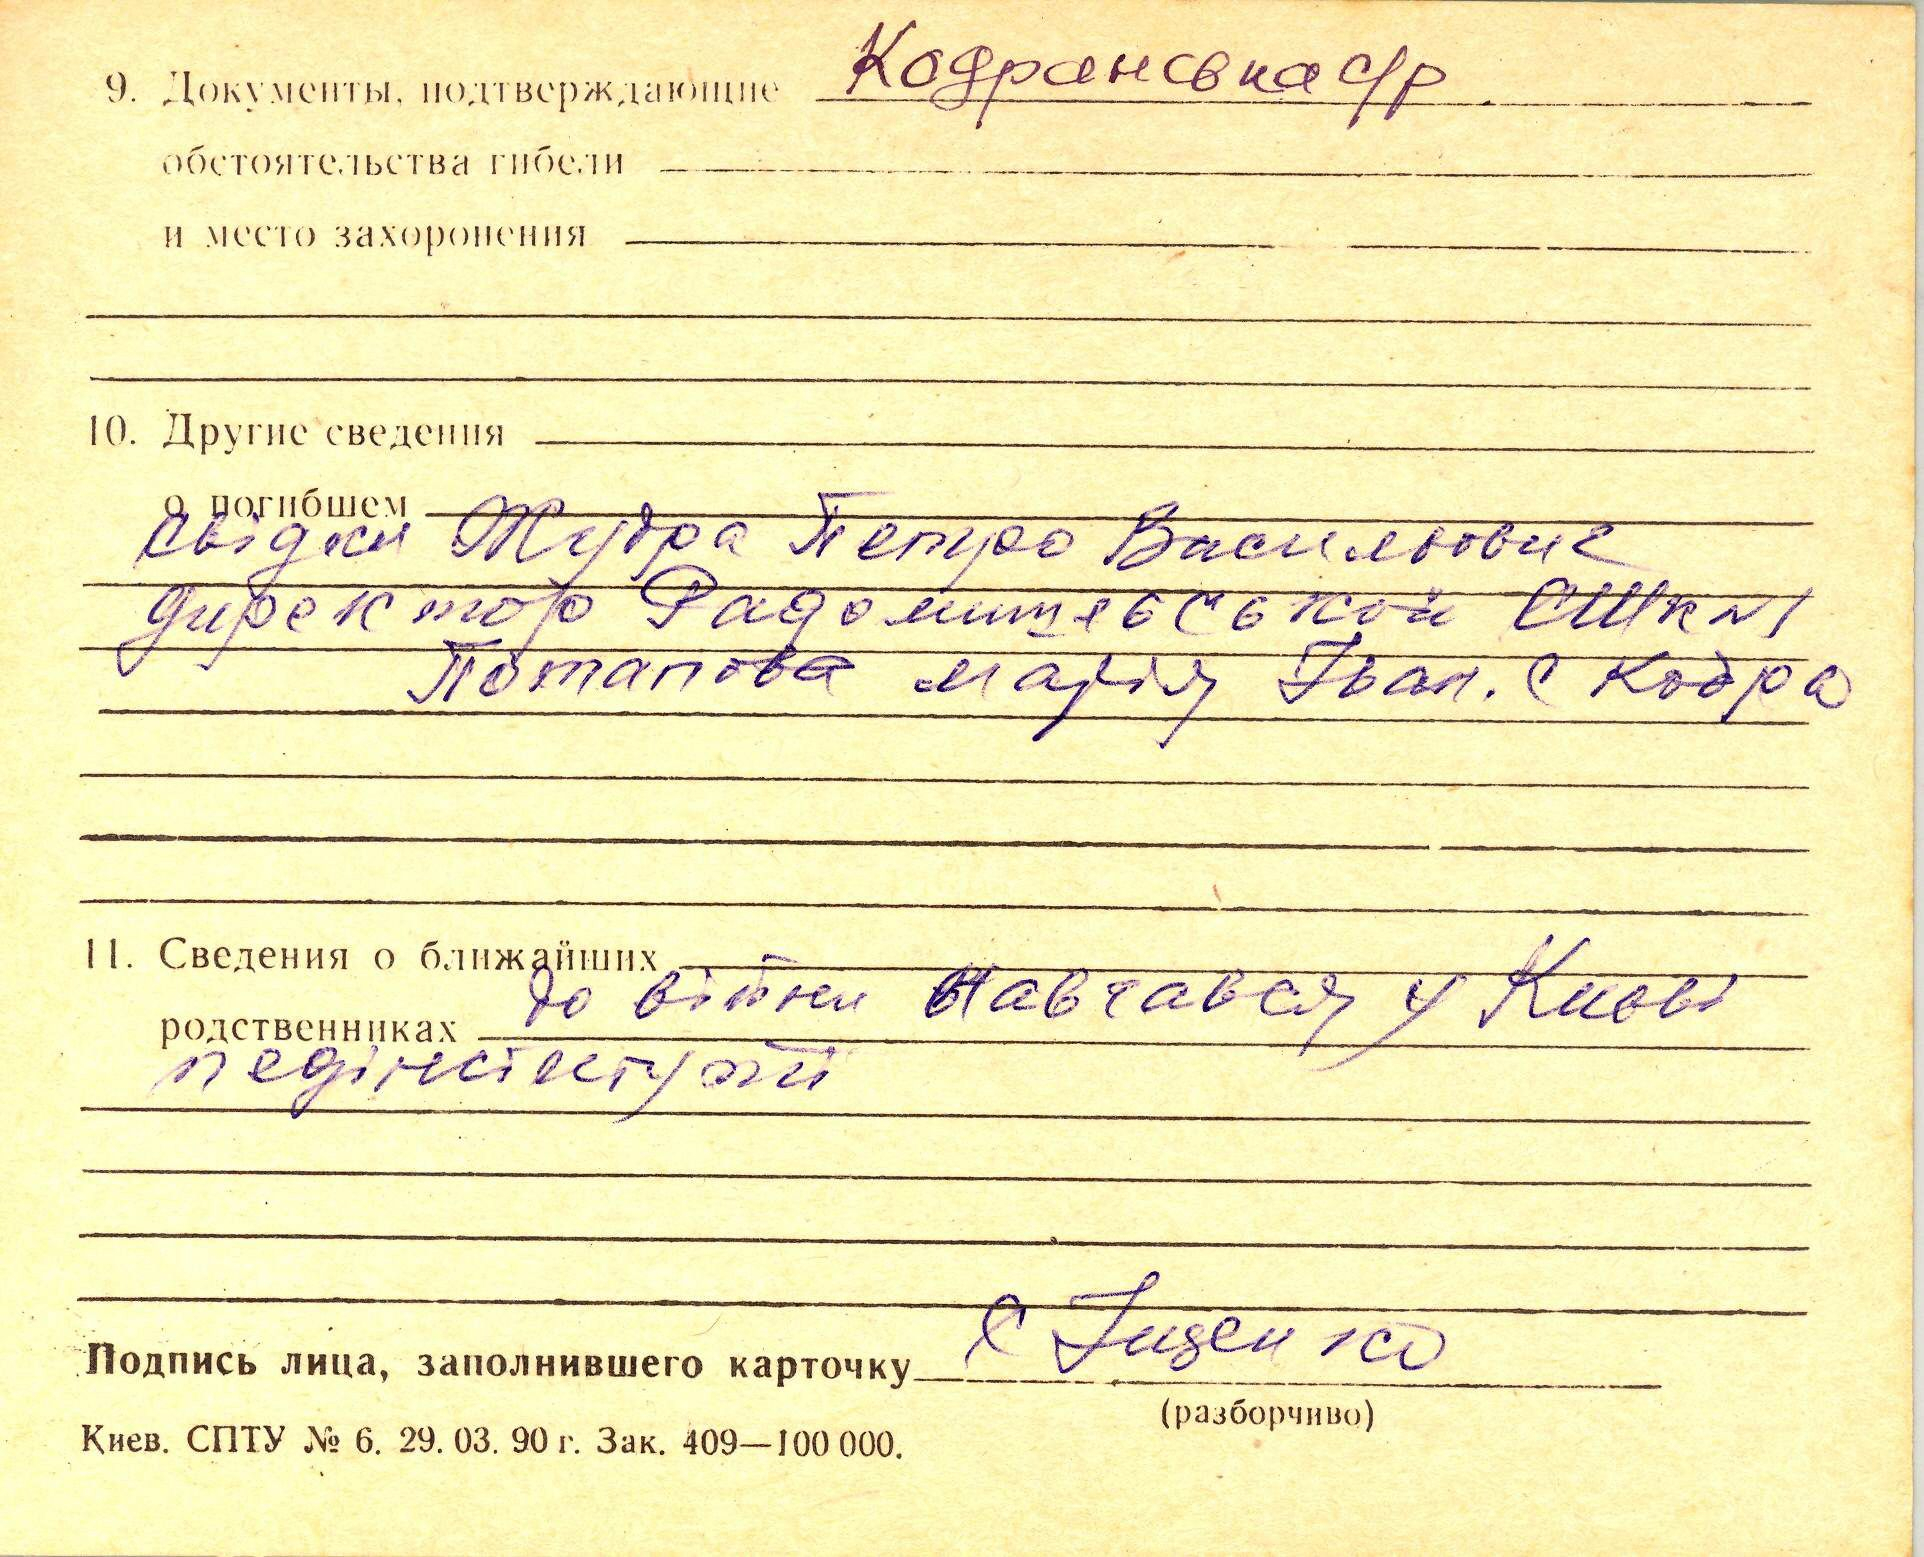 9. Документы, подтверждающие Кодранська с/р
обстоятельства гибели
и место захоронения
10. Другие сведения
о погибшем
свідки Жудра Петро Васильович
директор Радомишльської СШ №1
Потапова марія Іван. с Кодра
11. Сведения о ближайших
родственниках до війни навчався у Києві
педінституті
Подпись лица, заполнившего карточку С Іщенко
(разборчиво)
Киев. СПТУ № 6. 29. 03. 90 г. Зак. 409—100 000.